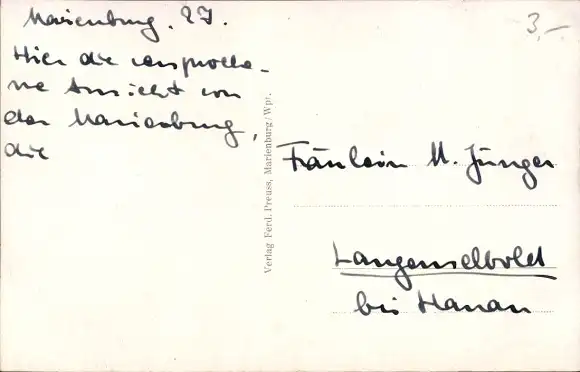 Marienburg. 27.
3,-
Hier die verproche-
ne Ansicht von
der Marienburg,
die
Verlag Ferd. Preuss, Marienburg/Wpr.
Fräulein M. Jünger
Langenselbold
bei Hanau